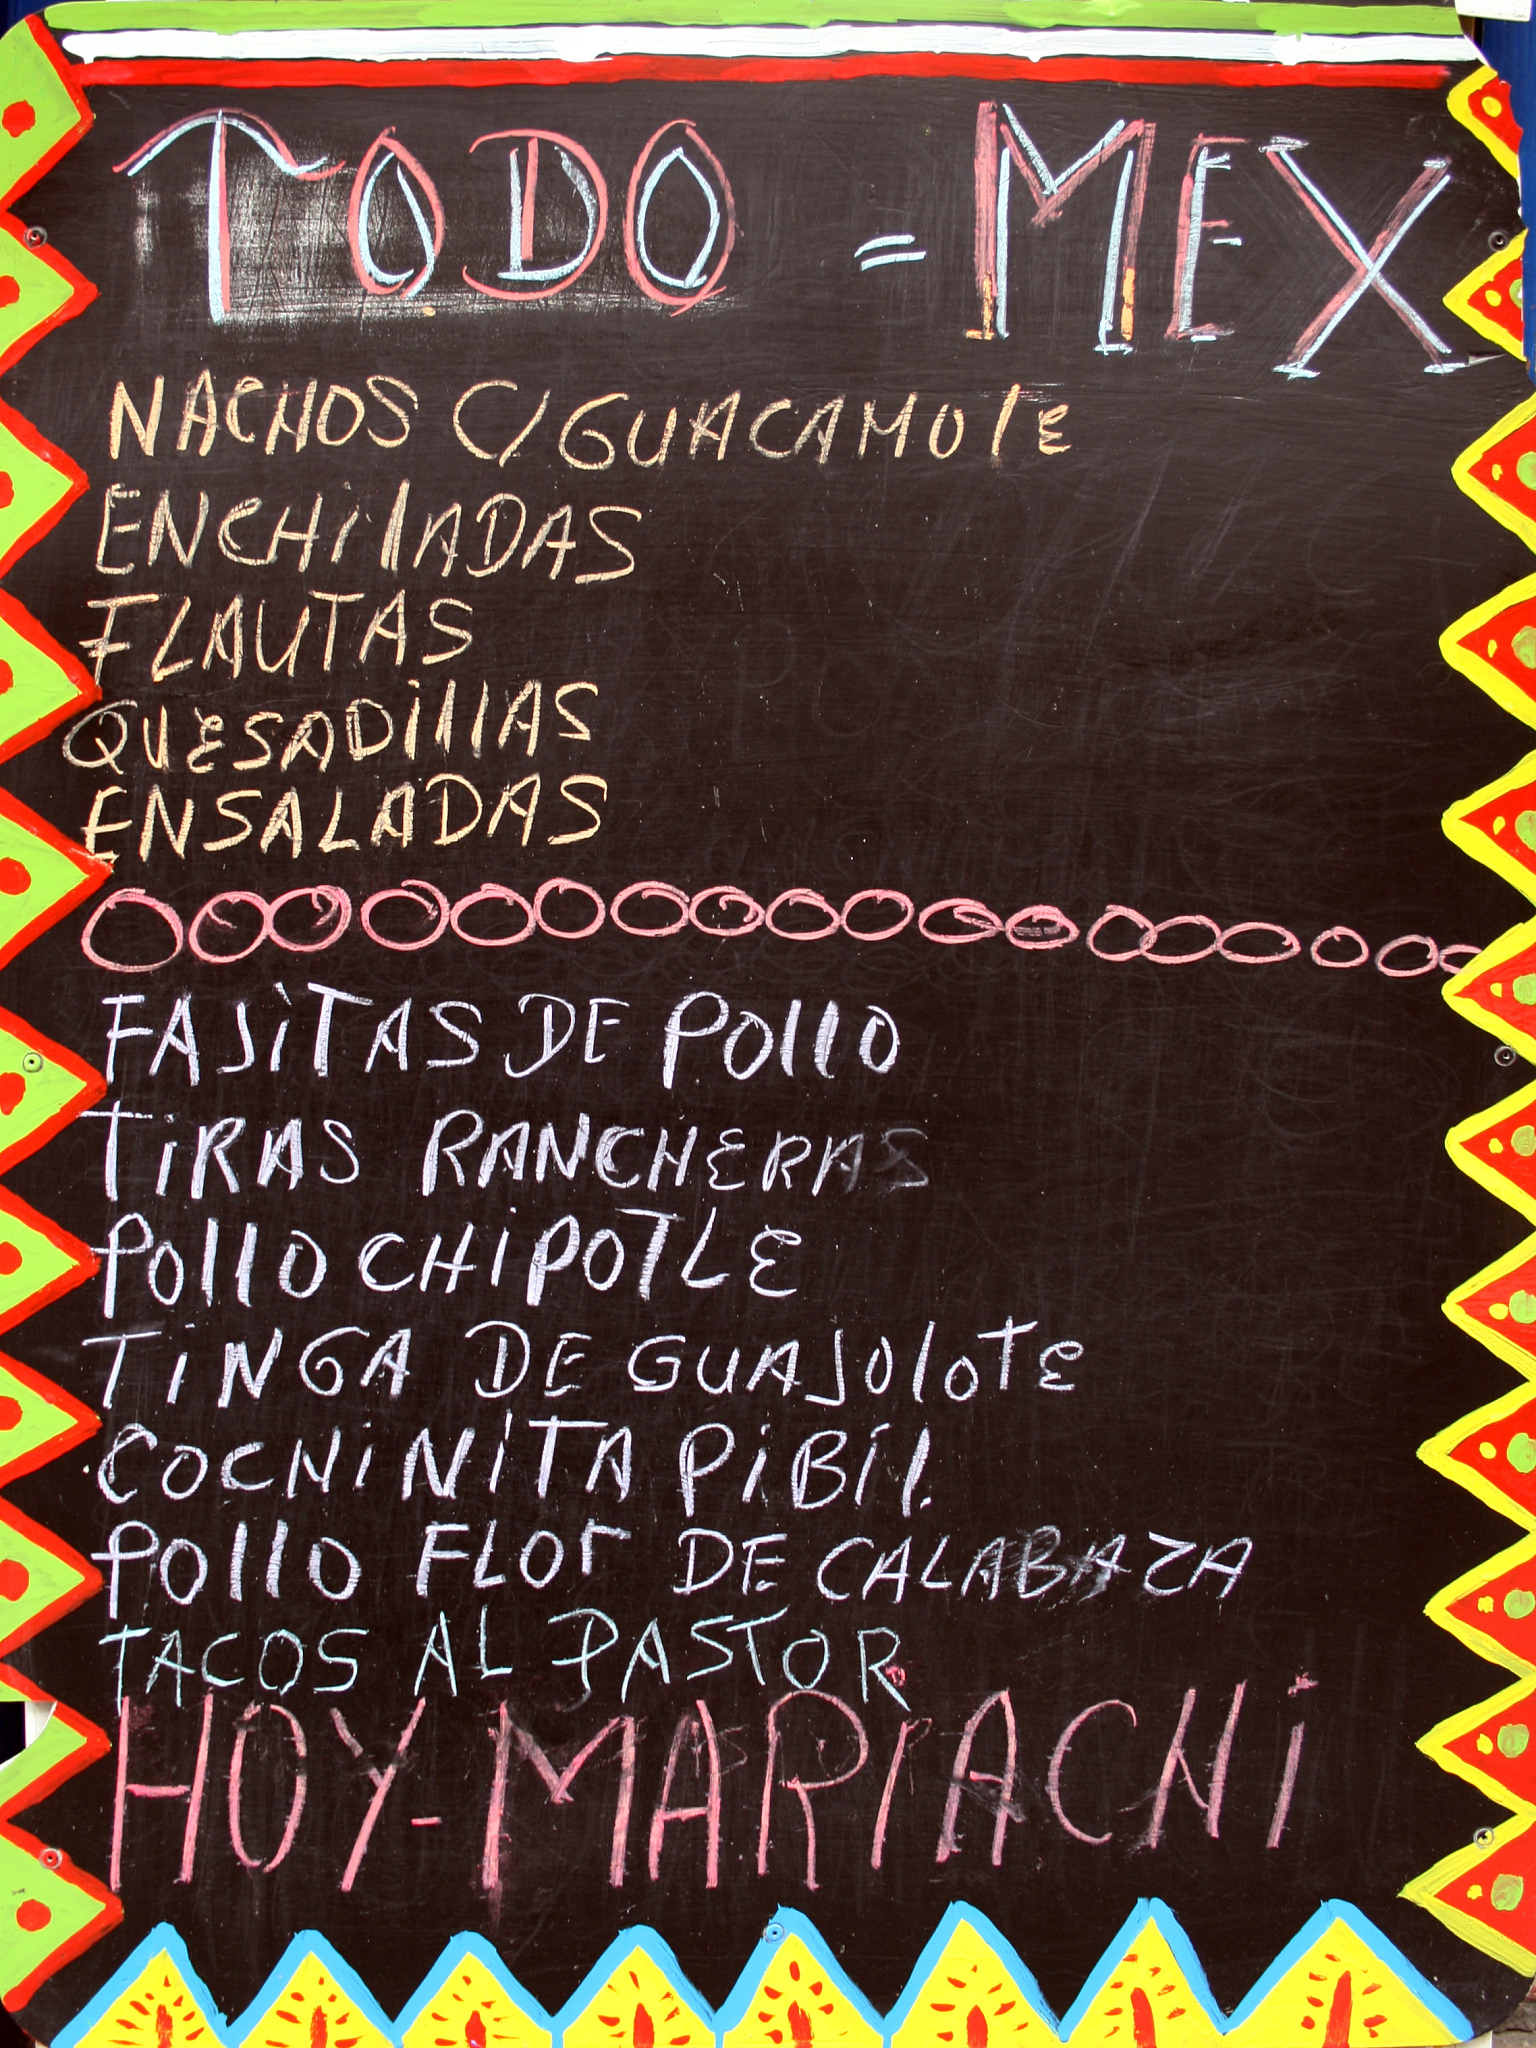 TODO = MEX
NACHOS C/GUACAMOlE
ENCHillADAS
FLAUTAS
QUESADillAS
ENSALADAS
FAJiTAS DE POllO
TiRAS RANCHERAS
POllO CHiPOTLE
TiNGA DE GUAJOlOTE
COCHiNiTA PiBil.
POllO FLOr DE CALABAZA
TACOS AL PASTOR
HOY-MARiACHi